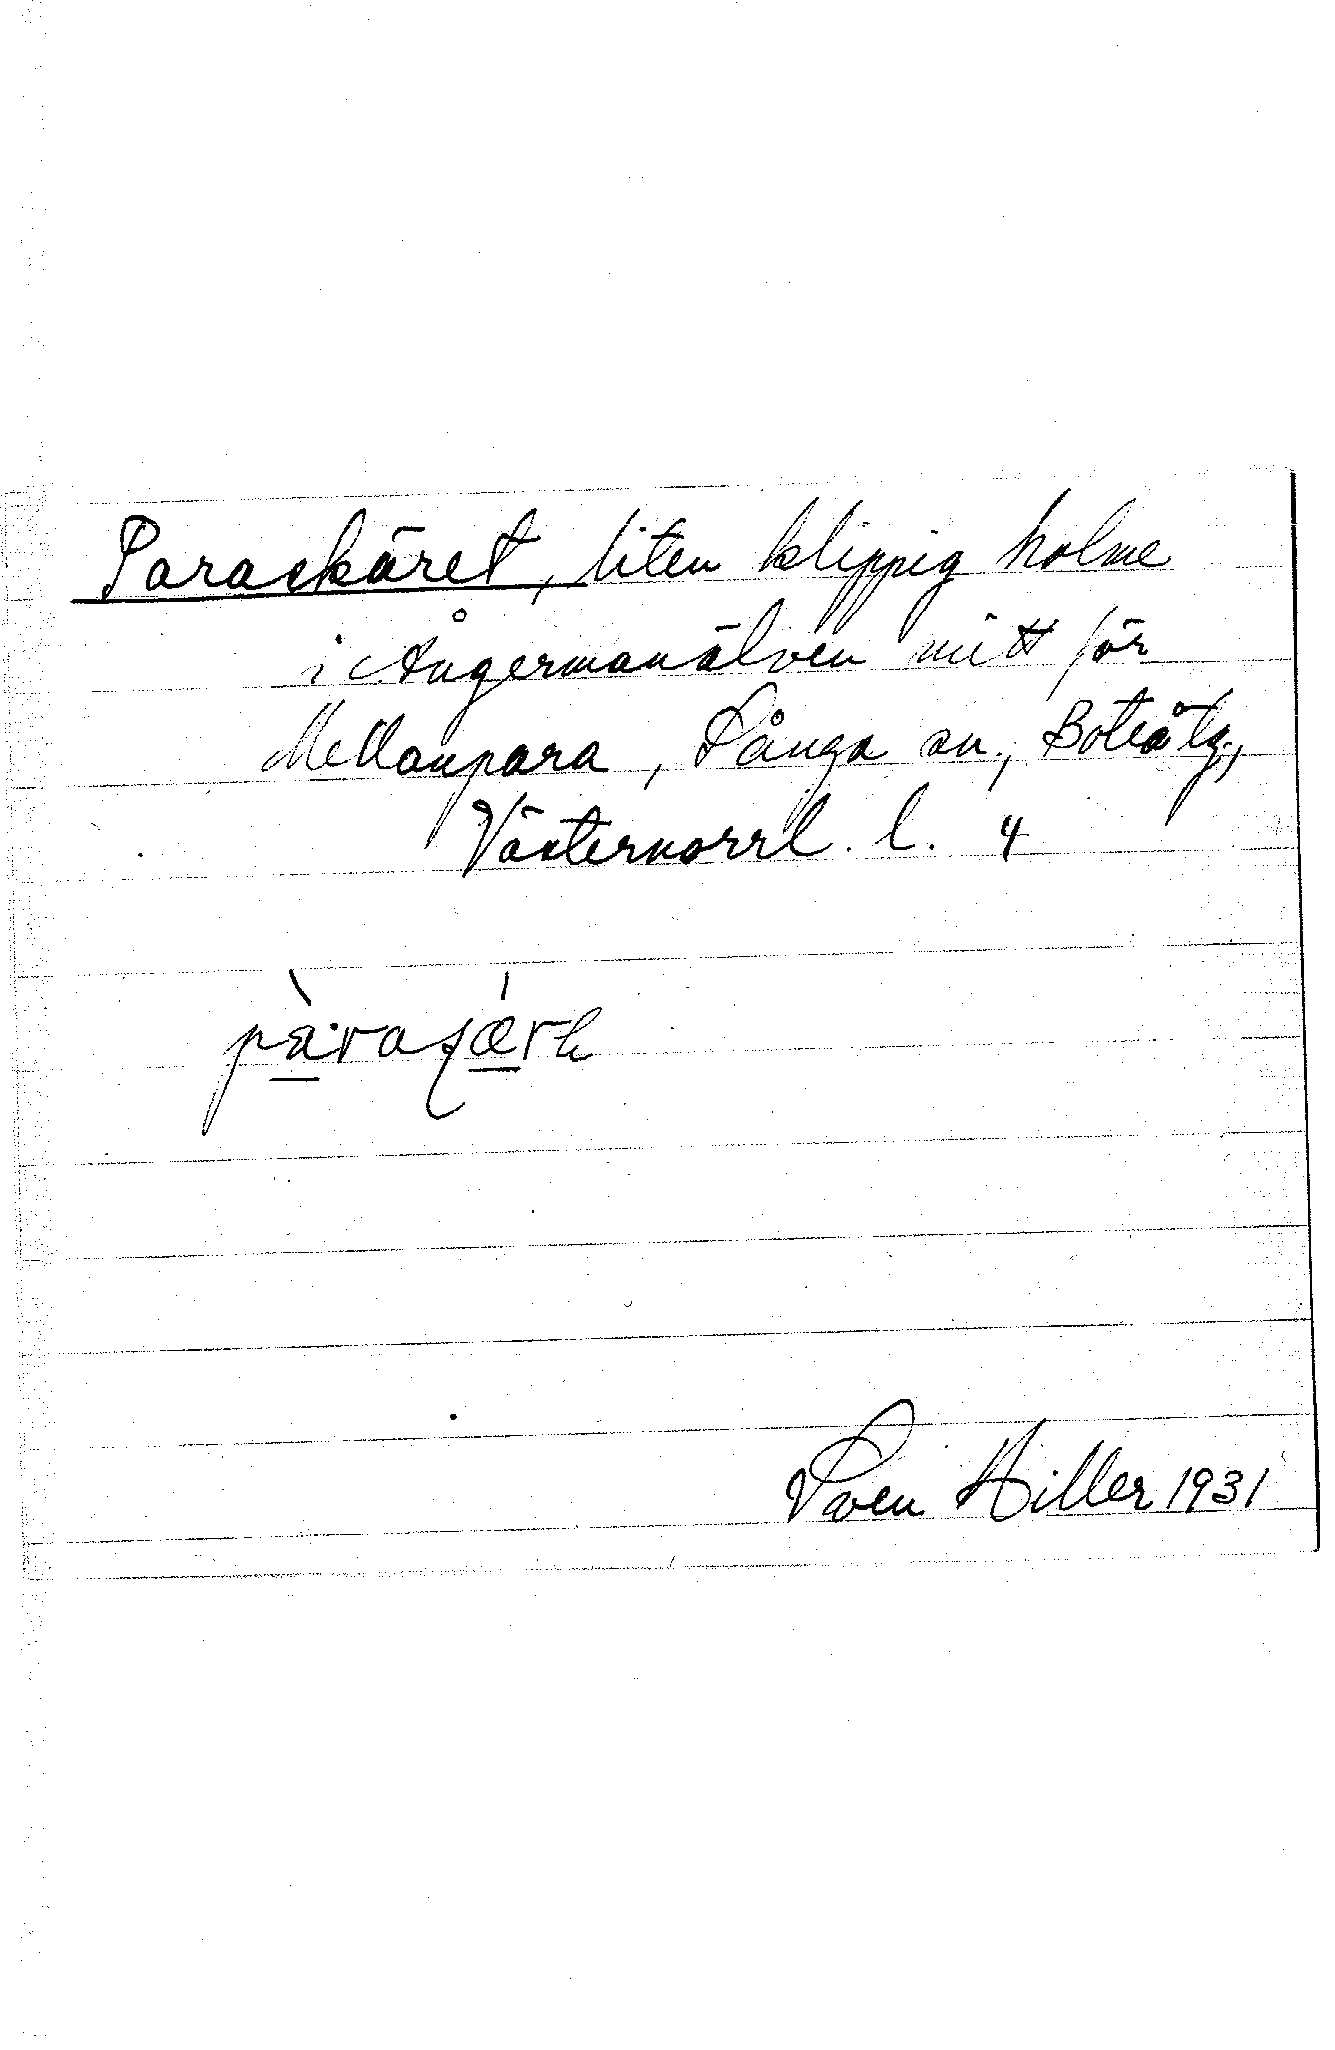 Paraskäret, liten klippig holme
i Ångermanälven mitt för
Mellanpara, Sånga sn, Boteå tg,
Västernorrl. l. 4
Sven Hiller 1931